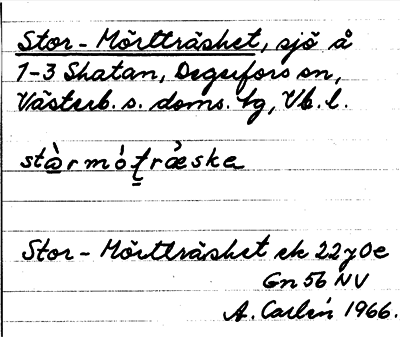 Stor-Mörtträsket, sjö å
1-3 Skatan, Degerfors sn,
Västerb. s. doms. tg, Vb. l.
Stor-Mörtträsket ek 22J0e
Gn 56 NV
A. Carlén 1966.